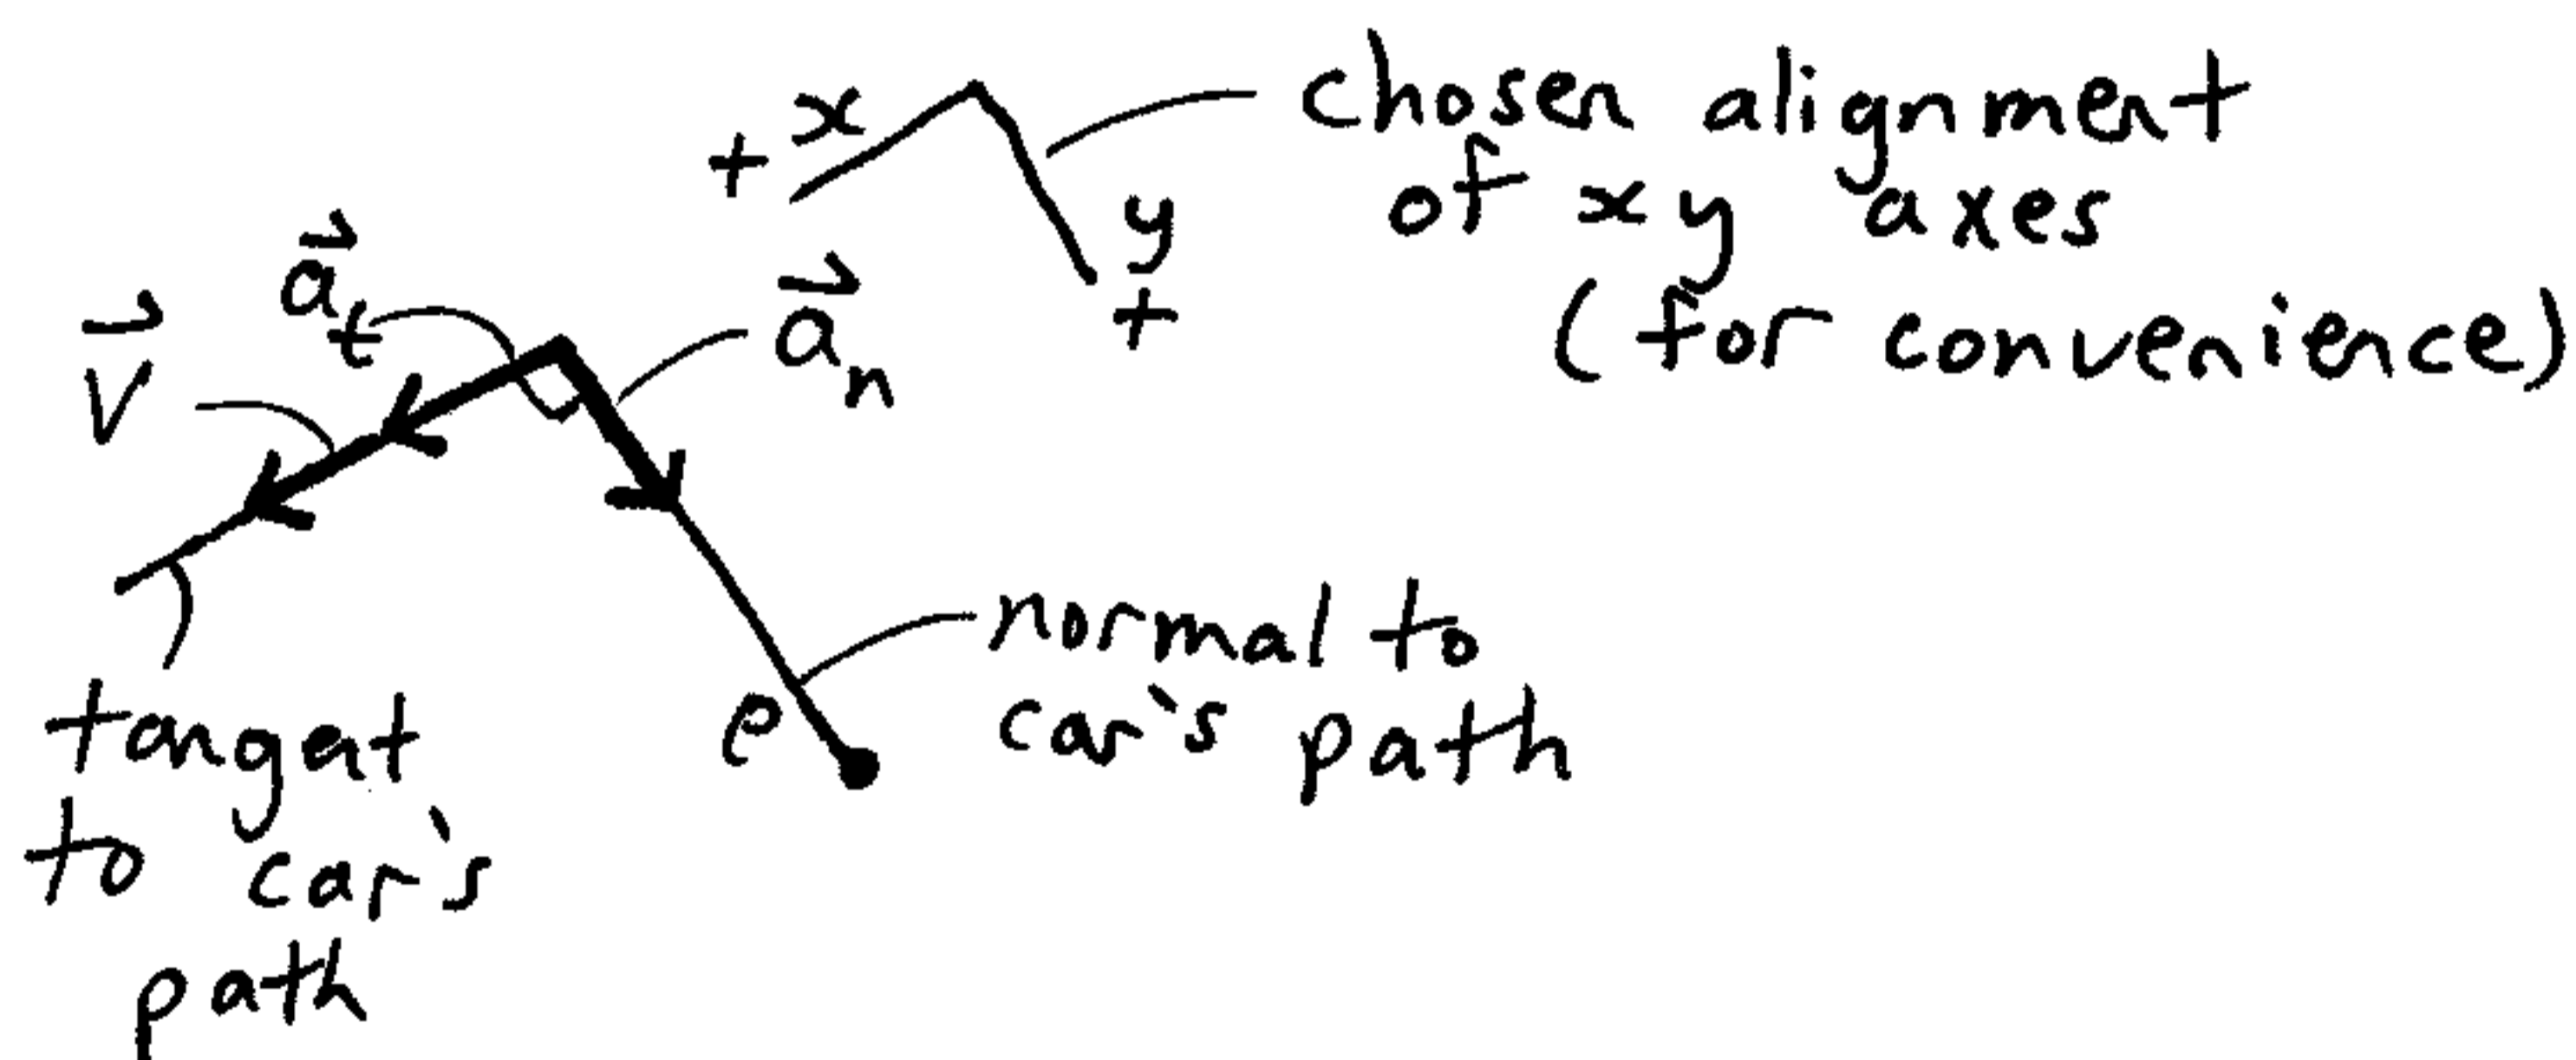 + x
y
+
chosen alignment
of xy axes
(for convenience)
a⃗ₜ
v⃗
a⃗ₙ
normal to
car's path
ρ
tangent
to car's
path